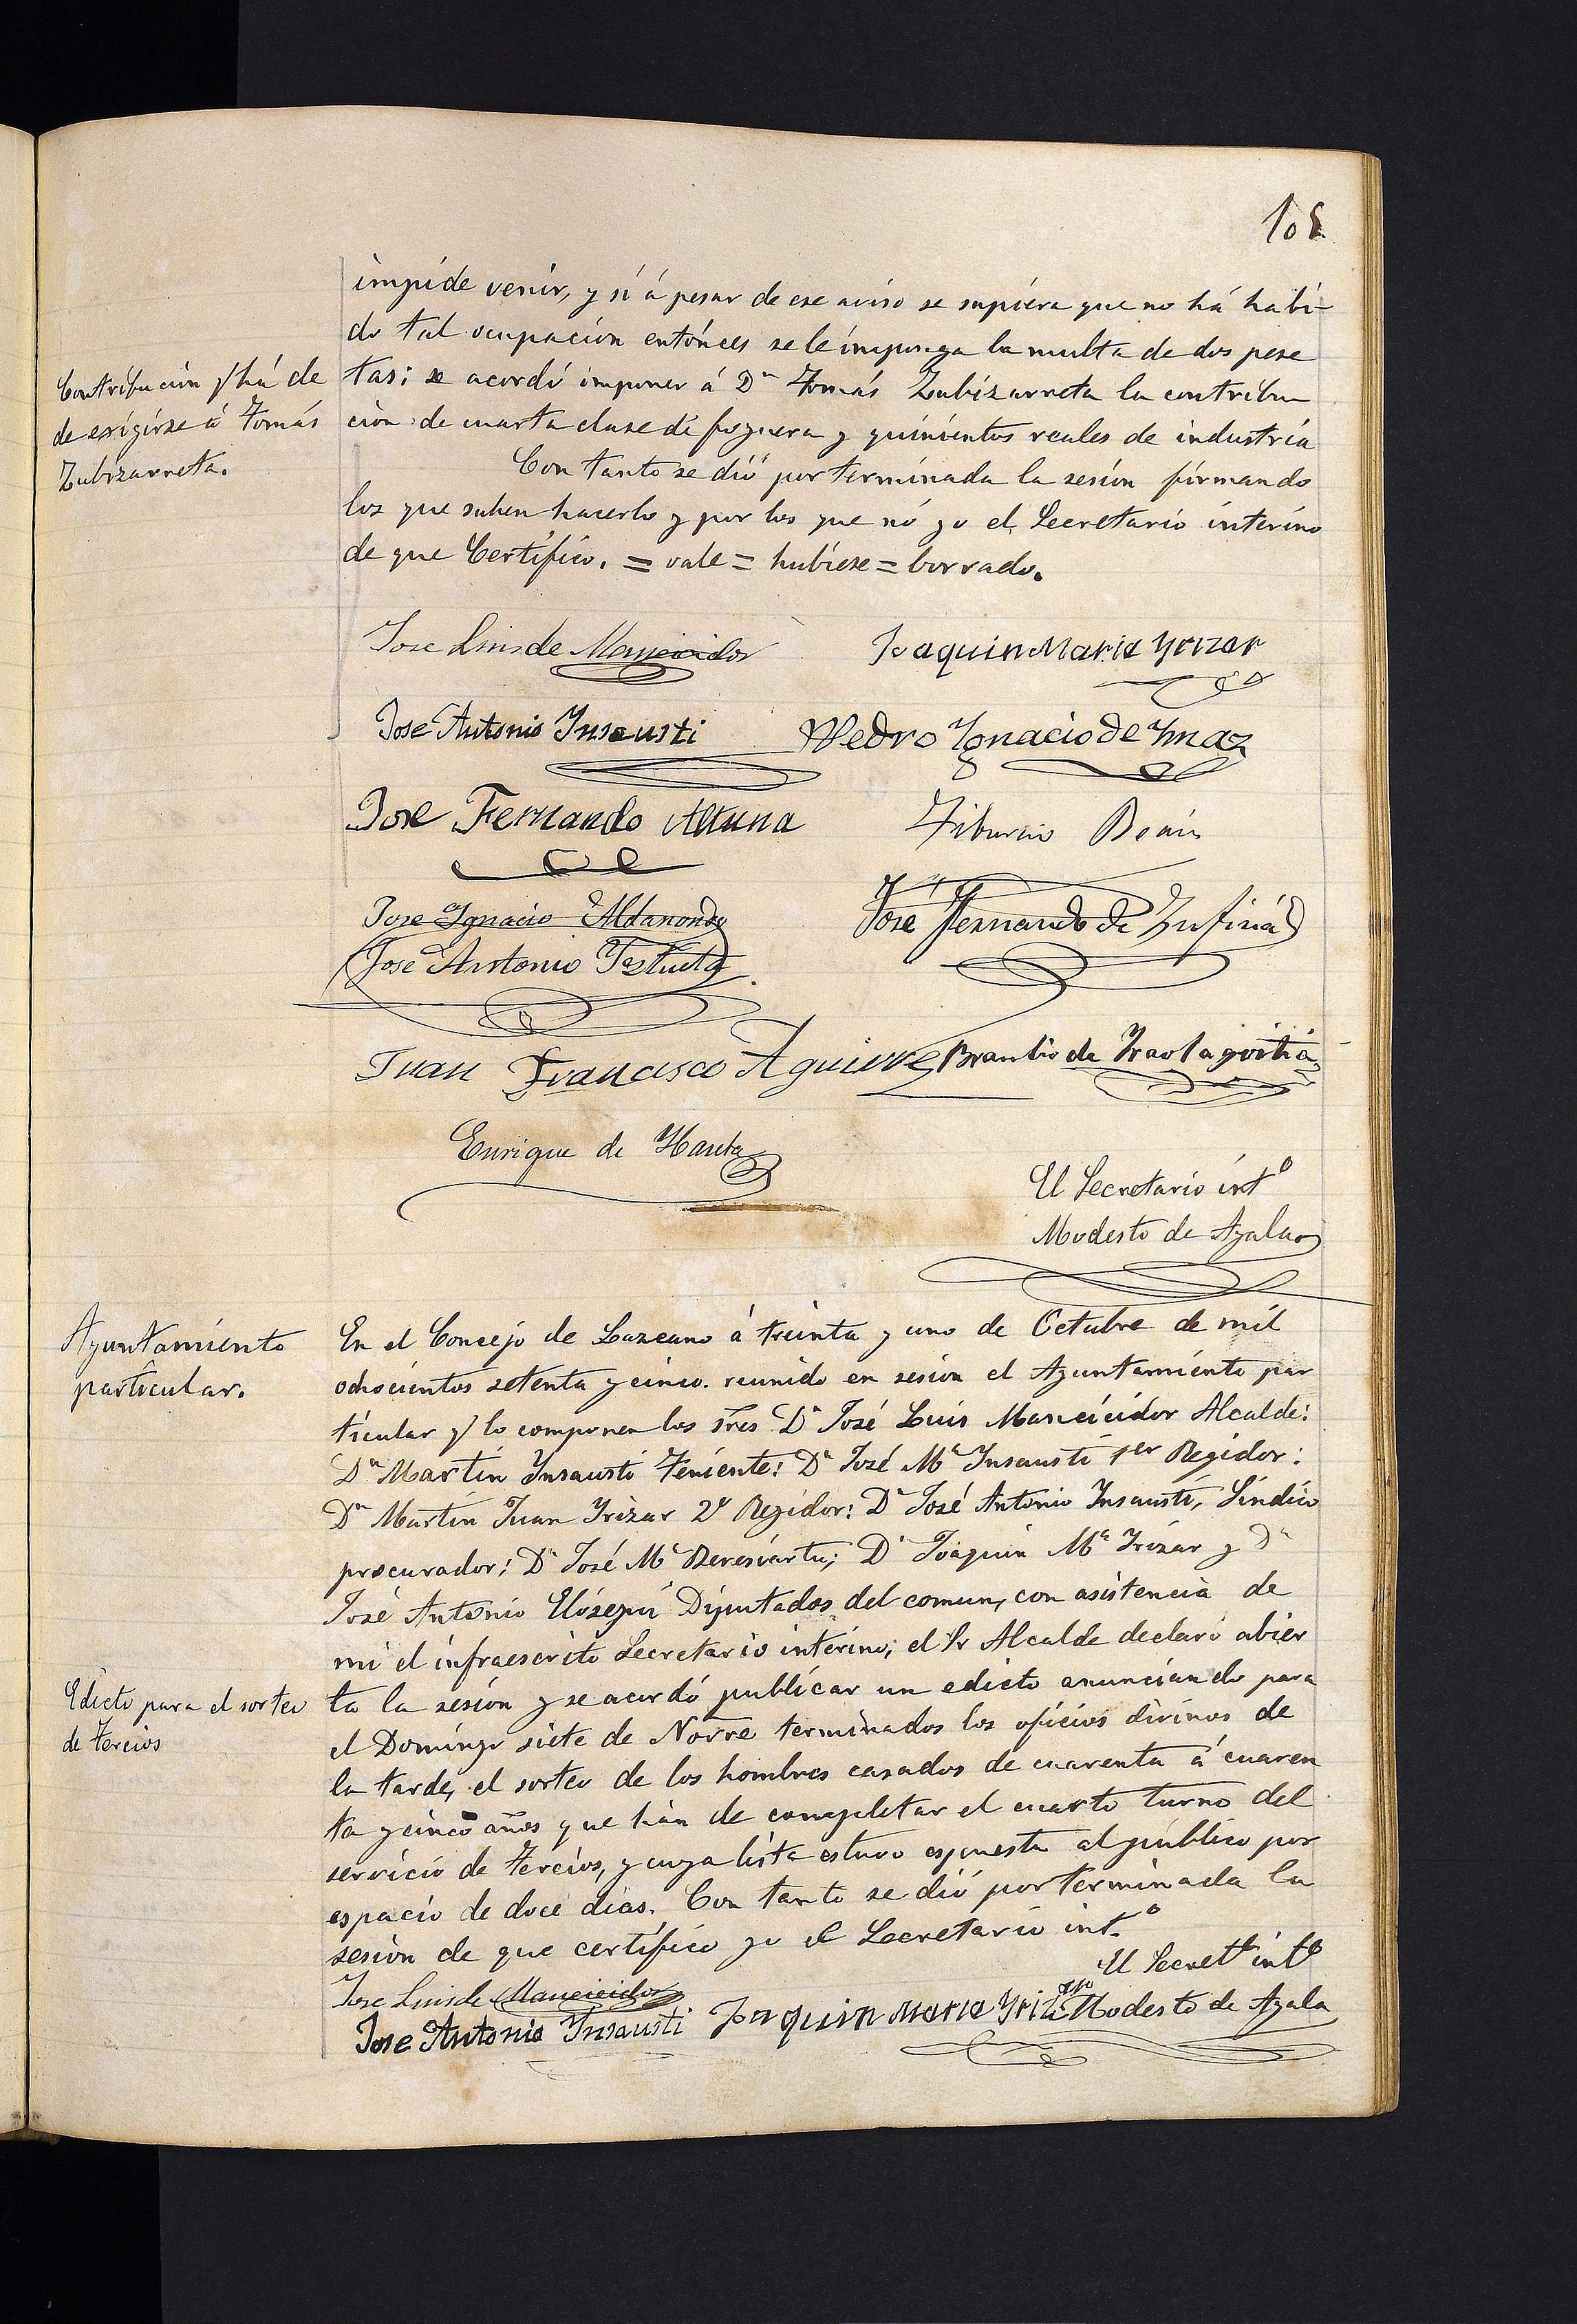 impide venir, y si á pesar de ese aviso se supiera que no há habi-
do tal ocupacion entónces se le imponga la multa de dos pese
Contribucion q há de
de exigirse á Tomás
Zubizarreta.
tas: se acordó imponer á Dn Tomás Zubizarreta la contribu
cion de cuarta clase de foguera y quinientos reales de industria
Con tanto se dió por terminada la sesion firmando
los que saben hacerlo y por los que nó yo el Secretario interino
de que Certifico. = vale = hubiese = borrado.
Jose Luis de Mancicidor
Joaquin Maria Yrizar
Jose Antonio Ynsausti
Pedro Ygnacio de Ymaz
Jose Fernando Altuna
Tiburcio Beain
Jose Ygnacio Aldanondo
José Fernando de Zufiria
Jose Antonio
Juan Francisco Aguirre
Braulio de Yraolagoitia
Enrique de
El Secretario into
Modesto de Ayala
Ayuntamiento
particular.
En el Concejo de Lazcano á treinta y uno de Octubre de mil
ochocientos setenta y cinco. reunido en sesion el Ayuntamiento par
ticular q lo componen los Sres Dn José Luis Mancicidor Alcalde:
Dn Martin Ynsausti Teniente: Dn José Ma Insausti 1er Regidor:
Dn Martin Juan Yrizar 2o Regidor: Dn José Antonio Insausti, Síndico
procurador: Dn José Ma Beresiartu; Dn Joaquin Ma Irizar y Dn
José Antonio Elósegui Diputados del comun, con asistencia de
mi el infraescrito Secretario interino; el Sr Alcalde declaró abier
Edicto para el sorteo
de tercios
ta la sesion y se acordó publicar un edicto anunciando para
el Domingo siete de Novre terminados los oficios divinos de
la tarde, el sorteo de los hombres casados de cuarenta á cuaren
ta y cinco años que hán de completar el cuarto turno del
servicio de tercios, y cuya lista estuvo espuesta al público por
espacio de doce dias. Con tanto se dió por terminada la
sesion de que certifico yo el Secretario into
El Secreto into
Jose Luis de Mancicidor
Jose Antonio Ynsausti
Joaquin Maria Yrizar
Modesto de Ayala